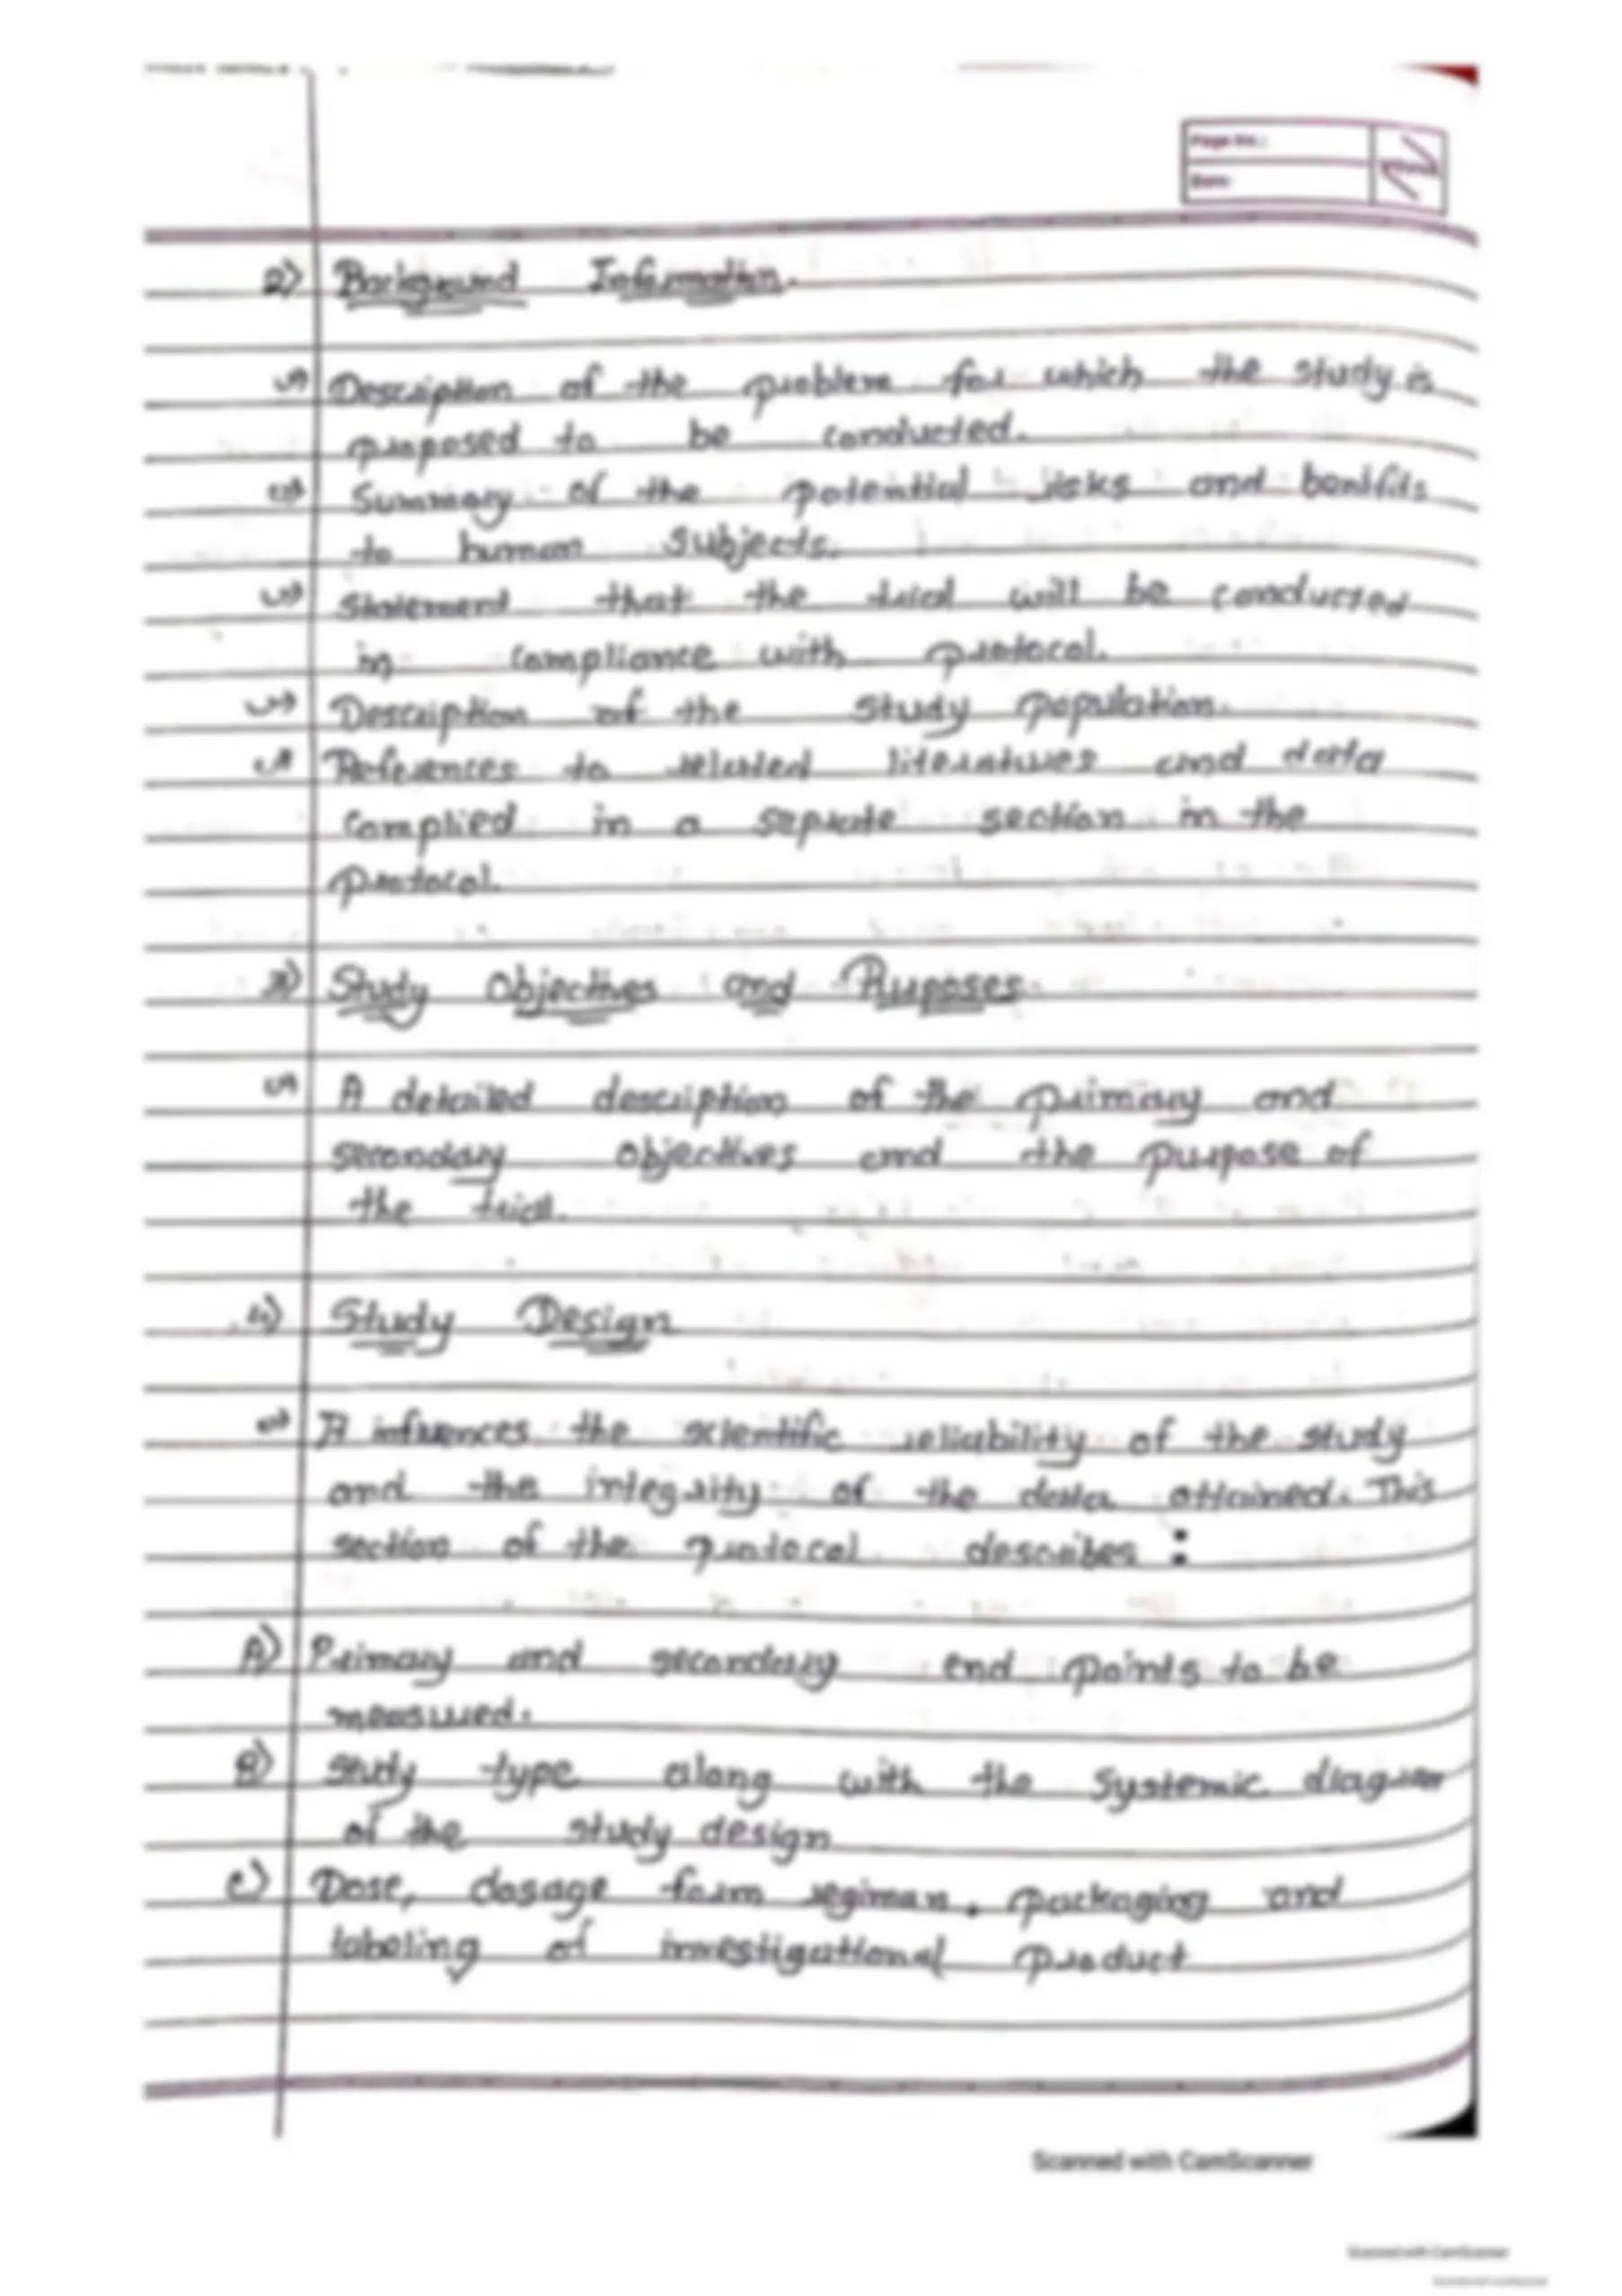 Page No.:
Date:
2) Background Information.
→ Description of the problem for which the study is
proposed to be conducted.
→ Summary of the potential risks and benifits
to human subjects.
→ Statement that the trial will be conducted
in compliance with protocol.
→ Description of the study population.
→ References to related literatures and data
complied in a seprate section in the
protocol.
3) Study Objectives and Puposes
→ A detailed description of the primary and
secondary objectives and the purpose of
the trial.
4) Study Design
→ It influences the scientific reliability of the study
and the integrity of the data attained. This
section of the protocol describes :
A) Primary and secondary end points to be
measured.
B) study type along with the systemic diagram
of the study design
C) Dose, dosage form regiman, packaging and
labeling of investigational product
Scanned with CamScanner
Scanned with CamScanner